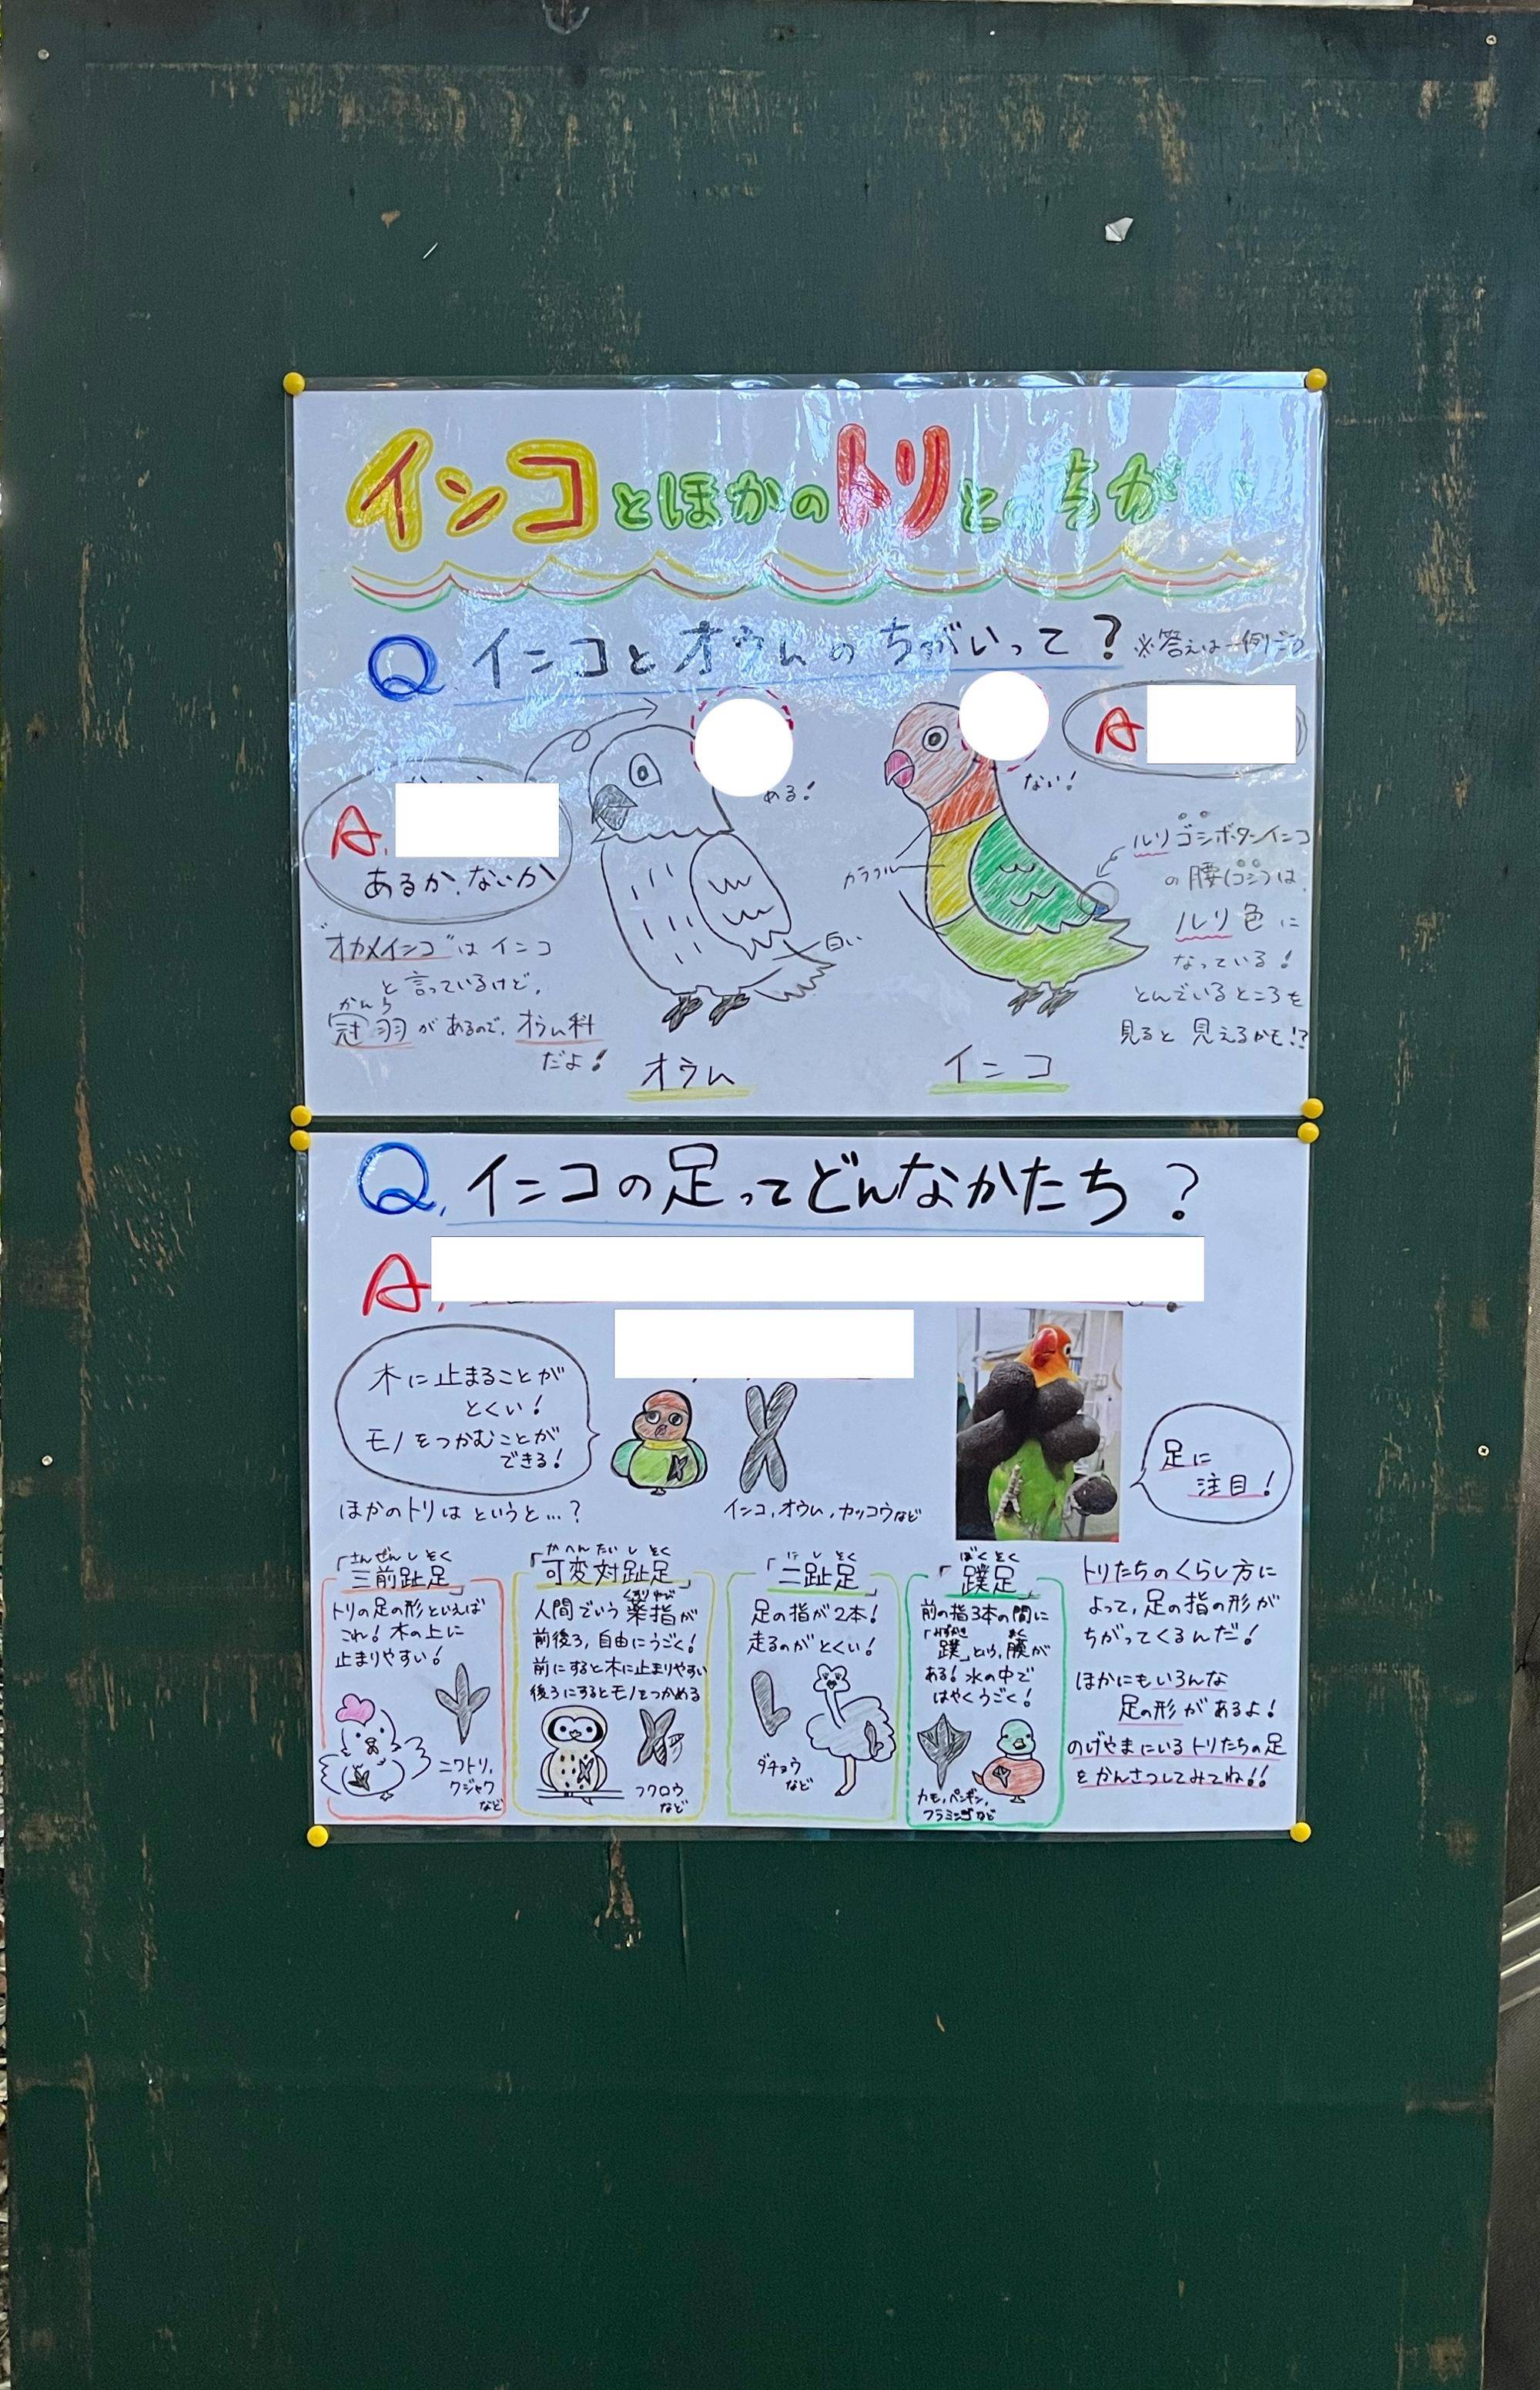 インコとほかのトリとのちがい
Q インコとオウムのちがいって？ ※答えは一例です
A.
あるか、ないか
ある！
ない！
A
"オカメインコ"はインコ
と言っているけど、
かんう
冠羽があるので、オウム科
だよ！
白い
オウム
カラフル
インコ
ルリゴシボタンインコ
の腰(ゴシ)は、
ルリ色に
なっている！
とんでいるところを
見ると見えるかも!?
Q. インコの足ってどんなかたち？
A.
木に止まることが
とくい！
モノをつかむことが
できる！
インコ、オウム、カッコウなど
足に
注目！
ほかのトリはというと…？
さんぜんしそく
「三前趾足」
トリの足の形といえば
これ！木の上に
止まりやすい！
ニワトリ、
クジャク
など
かへんたいしそく
「可変対趾足」
くすりゆび
人間でいう薬指が
前後ろ、自由にうごく！
前にすると木に止まりやすい
後ろにするとモノをつかめる
フクロウ
など
にしそく
「二趾足」
足の指が2本！
走るのがとくい！
ダチョウ
など
ぼくそく
「蹼足」
前の指3本の間に
みずかき まく
「蹼」という、膜が
ある！水の中で
はやくうごく！
カモ、ペンギン、
フラミンゴなど
トリたちのくらし方に
よって、足の指の形が
ちがってくるんだ！
ほかにもいろんな
足の形があるよ！
のげやまにいるトリたちの足
をかんさつしてみてね!!